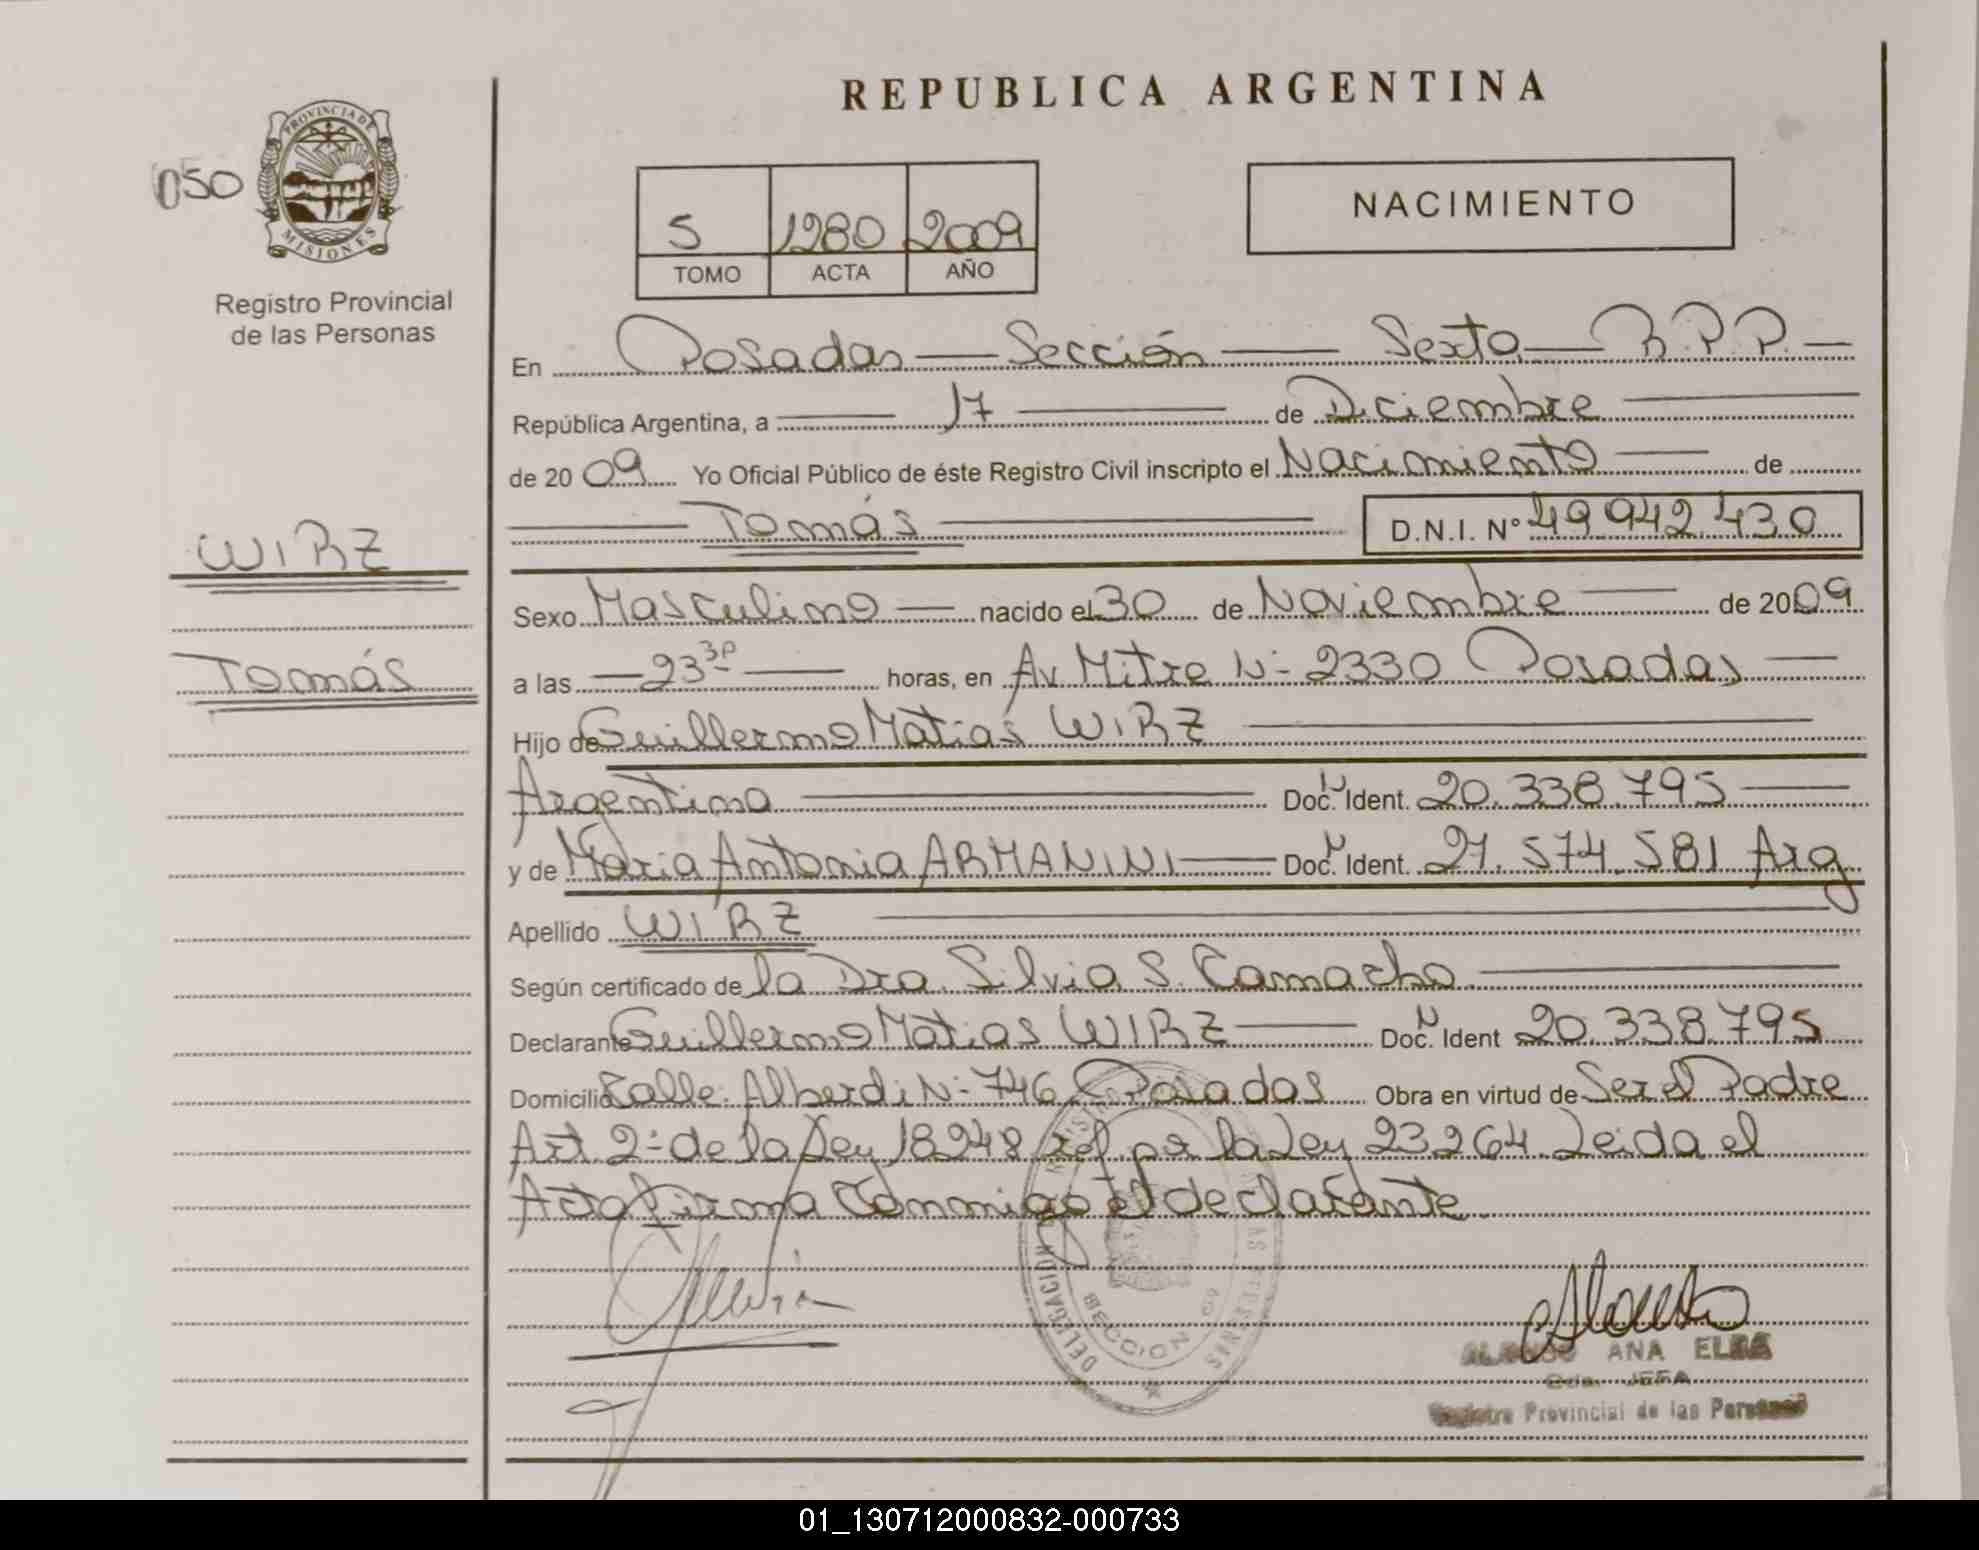 REPUBLICA ARGENTINA
PROVINCIA DE
MISIONES
050
Registro Provincial
de las Personas
5 1280 2009
TOMO ACTA AÑO
NACIMIENTO
En Posadas — Sección — Sexta — R.P.P. —
República Argentina, a — 17 — de Diciembre —
de 2009 Yo Oficial Público de éste Registro Civil inscripto el Nacimiento — de
— Tomás — D.N.I. N° 49 942 430
WIRZ
Tomás
Sexo Masculino — nacido el 30 de Noviembre — de 2009
a las — 23 30 — horas, en Av. Mitre Nº 2330 Posadas —
Hijo de Guillermo Matias WIRZ —
Argentino — Doc. N Ident. 20.338.795 —
y de Maria Antonia ARMANINI — Doc. N Ident. 21.574.581 Arg
Apellido WIRZ —
Según certificado de la Dra. Silvia S. Camacho —
Declarante Guillermo Matias WIRZ — Doc. N Ident 20.338.795
Domicilio Calle Alberdi Nº 746 Posadas Obra en virtud de Ser el Padre
Art. 2º de la Ley 18248 ref. por la Ley 23264. Leida el
Acta firma Conmigo el declarante
DELEGACION
SECCION 6ª
ALONSO ANA ELBA
JEFA
Registro Provincial de las Personas
01_130712000832-000733